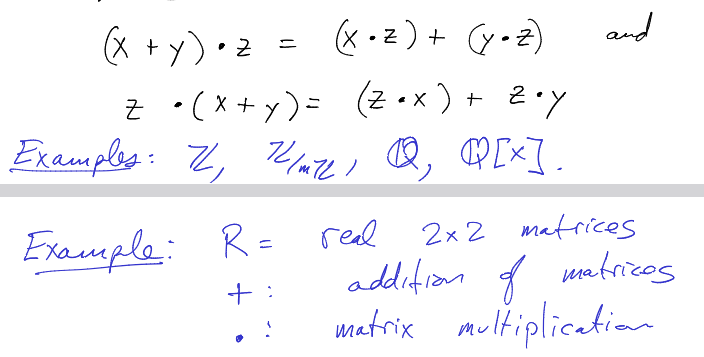 (x + y) · z = (x · z) + (y · z) and
z · (x + y) = (z · x) + z · y
Examples: ℤ, ℤ/mℤ, ℚ, ℚ[x].
Example: R = real 2×2 matrices
+ : addition of matrices
· : matrix multiplication